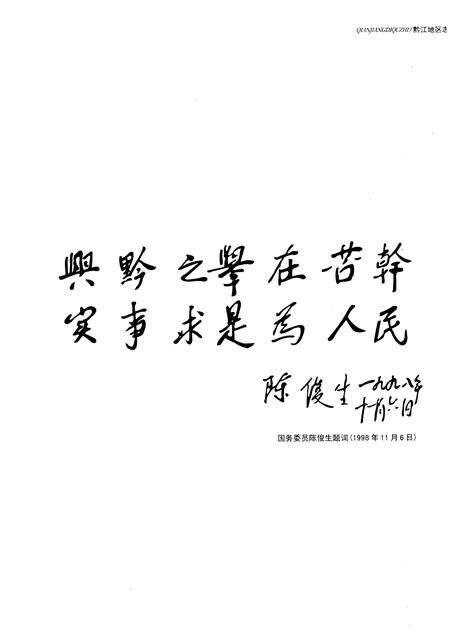 QIANJIANGDIQUZHI/黔江地区志
興黔之舉在苦幹
实事求是為人民
陈俊生 一九九八年
十一月六日
国务委员陈俊生题词(1998年11月6日)